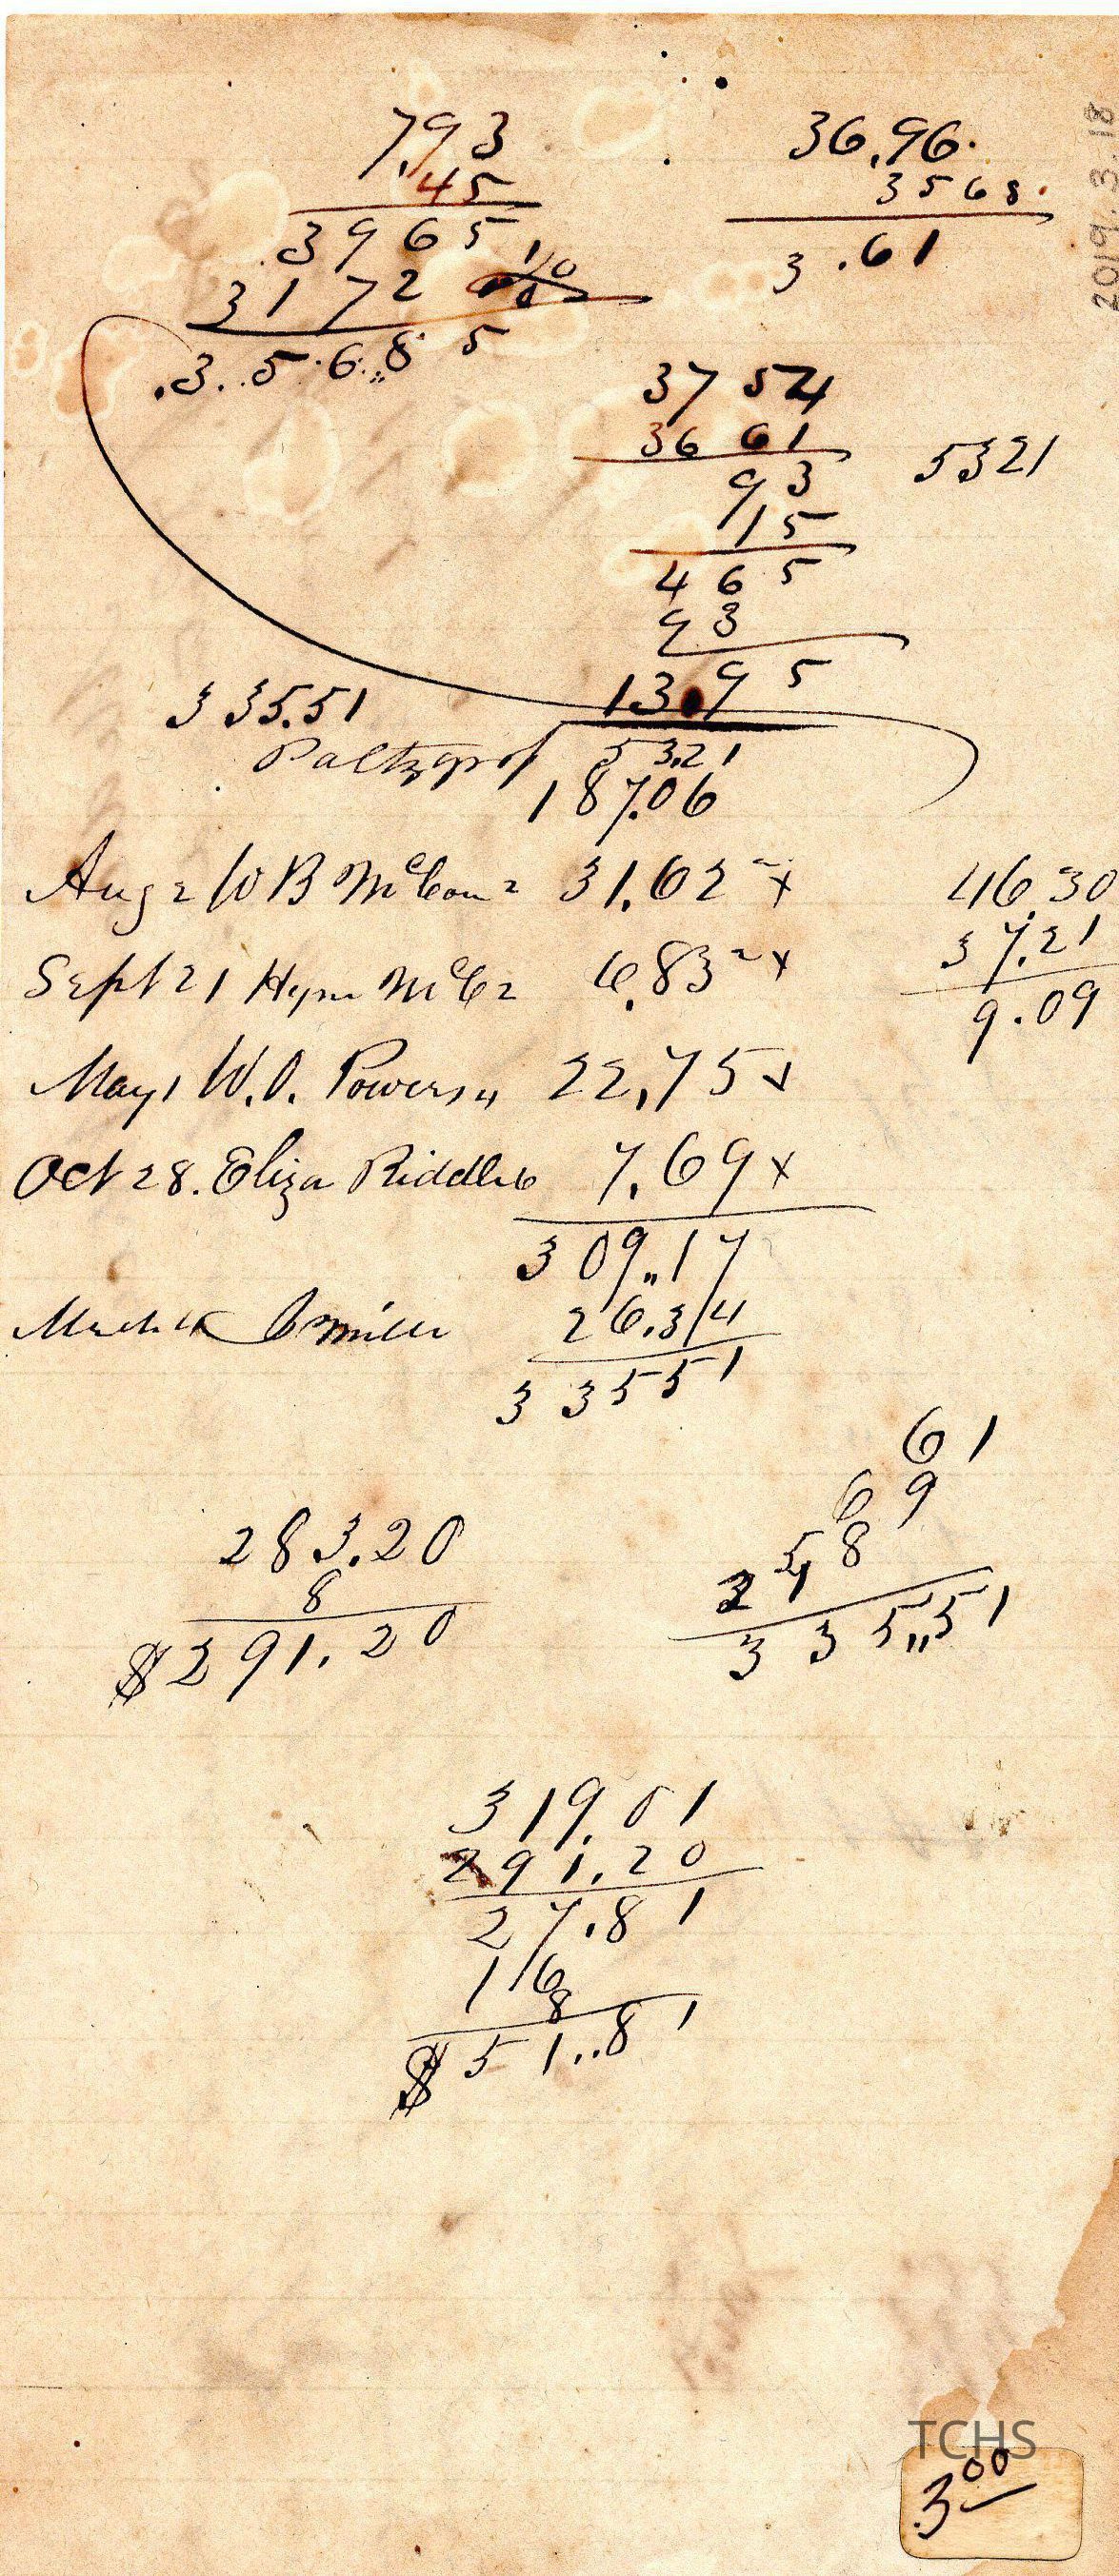 7.93
45
3965
3172
.3.5.6.8 5
36.96.
3568.
3.61
2019.3.18
3754
3661
93
15
465
93
13.95
5321
335.51
Paltzgrof 53.21
187.06
Aug 2 W B McCom 2 31.62 x
Sept 21 Hyra McC 2 6.83 x
46.30
37.21
9.09
May 1 W.O. Powers 4 22.75 x
Oct 28. Eliza Riddle 6 7.69 x
309.17
Miller 26.34
33551
61
69
58
335.51
283.20
8
$291.20
319.01
291.20
27.81
16
8
$51.81
TCHS
3.00